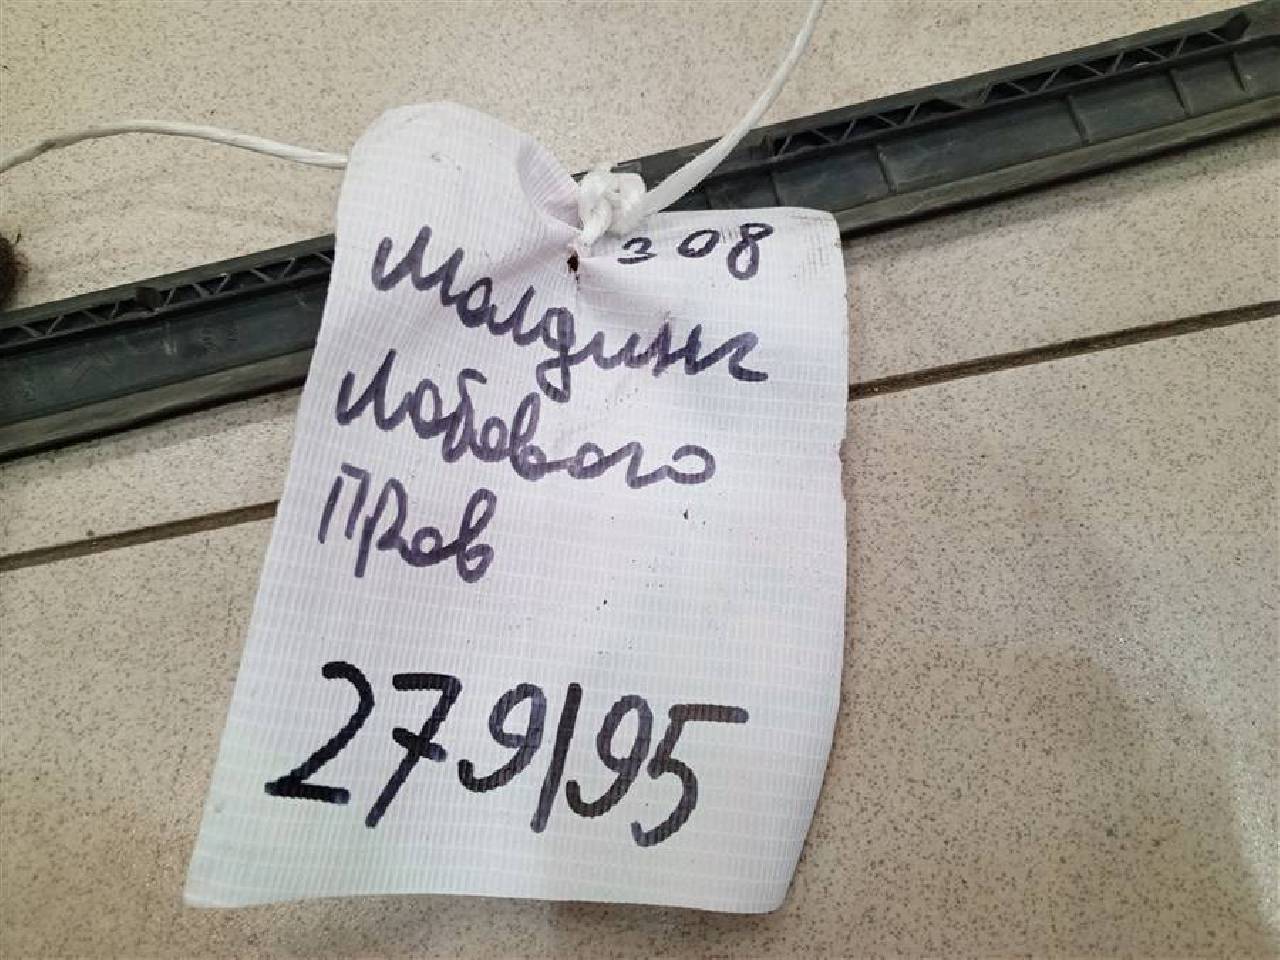 308
Молдинг
Лобового
Прав
279195